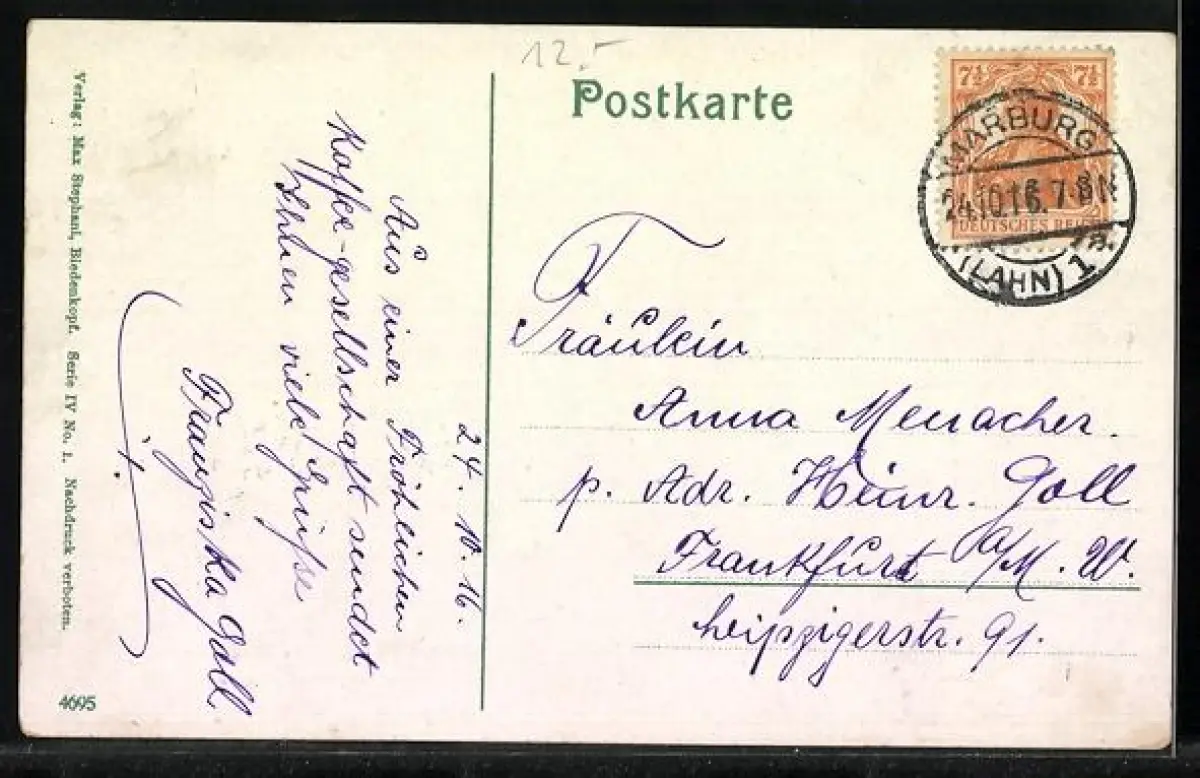 12.-
Postkarte
7½ 7½
DEUTSCHES REICH
MARBURG
24.10.16. 7-8N
(LAHN) 1 a.
24. 10. 16.
Aus einer fröhlichen
Kaffee-gesellschaft sendet
Ihnen viele Grüsse
Franziska Goll
Fräulein
Anna Menacher.
p. Adr. Heinr. Goll
Frankfurt a/M. W.
Leipzigerstr. 91.
Verlag: Max Stephani, Biedenkopf. Serie IV No. 1. Nachdruck verboten.
4695